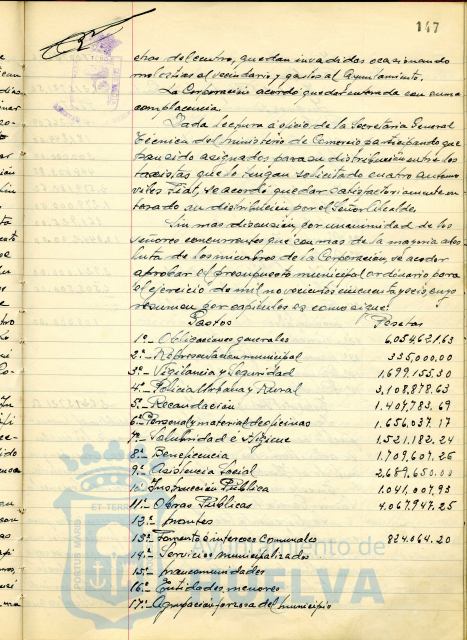 147
chas del centro, quedan invadidas ocasionando
molestias al vecindario y gastos al Ayuntamiento.
La Corporación acordó quedar enterada con suma
complacencia.
Dada lectura a oficio de la Secretaría General
Técnica del Ministerio de Comercio participando que
han sido asignados para su distribución entre los
taxistas que lo tengan solicitado cuatro automo
viles Fiat, se acordó quedar satisfactoriamente en
terado su distribución por el Señor Alcalde.
Sin mas discusión, por unanimidad de los
señores concurrentes que son mas de la mayoria abso
luta de los miembros de la Corporación, se acordó
aprobar el presupuesto municipal ordinario para
el ejercicio de mil novecientos cincuenta y seis, cuyo
resumen por capítulos es como sigue:
Gastos Pesetas
1º.- Obligaciones generales 6,054,621,63
2º.- Representación municipal 335,000,00
3º.- Vigilancia y Seguridad 1,699,155,30
4º.- Policia Urbana y Rural 3,108,878,63
5º.- Recaudación 1.407,783,69
6º.- Personal y material de oficinas 1.656,037,17
7º.- Salubridad e Higiene 1.521,182,24
8º.- Beneficencia 1.709,607,26
9º.- Asistencia Social 2,689,650,00
10.- Instrucción Pública 1.041,007,93
11º.- Obras Públicas 4.067,947,25
12º.- Montes
13º.- Fomento e intereses comunales 824,064,20
14º.- Servicios municipalizados
15º.- Mancomunidades
16º.- Entidades menores
17º.- Agrupación forzosa del municipio
ET TERR
PORTUS MARIS
ento de
ELVA